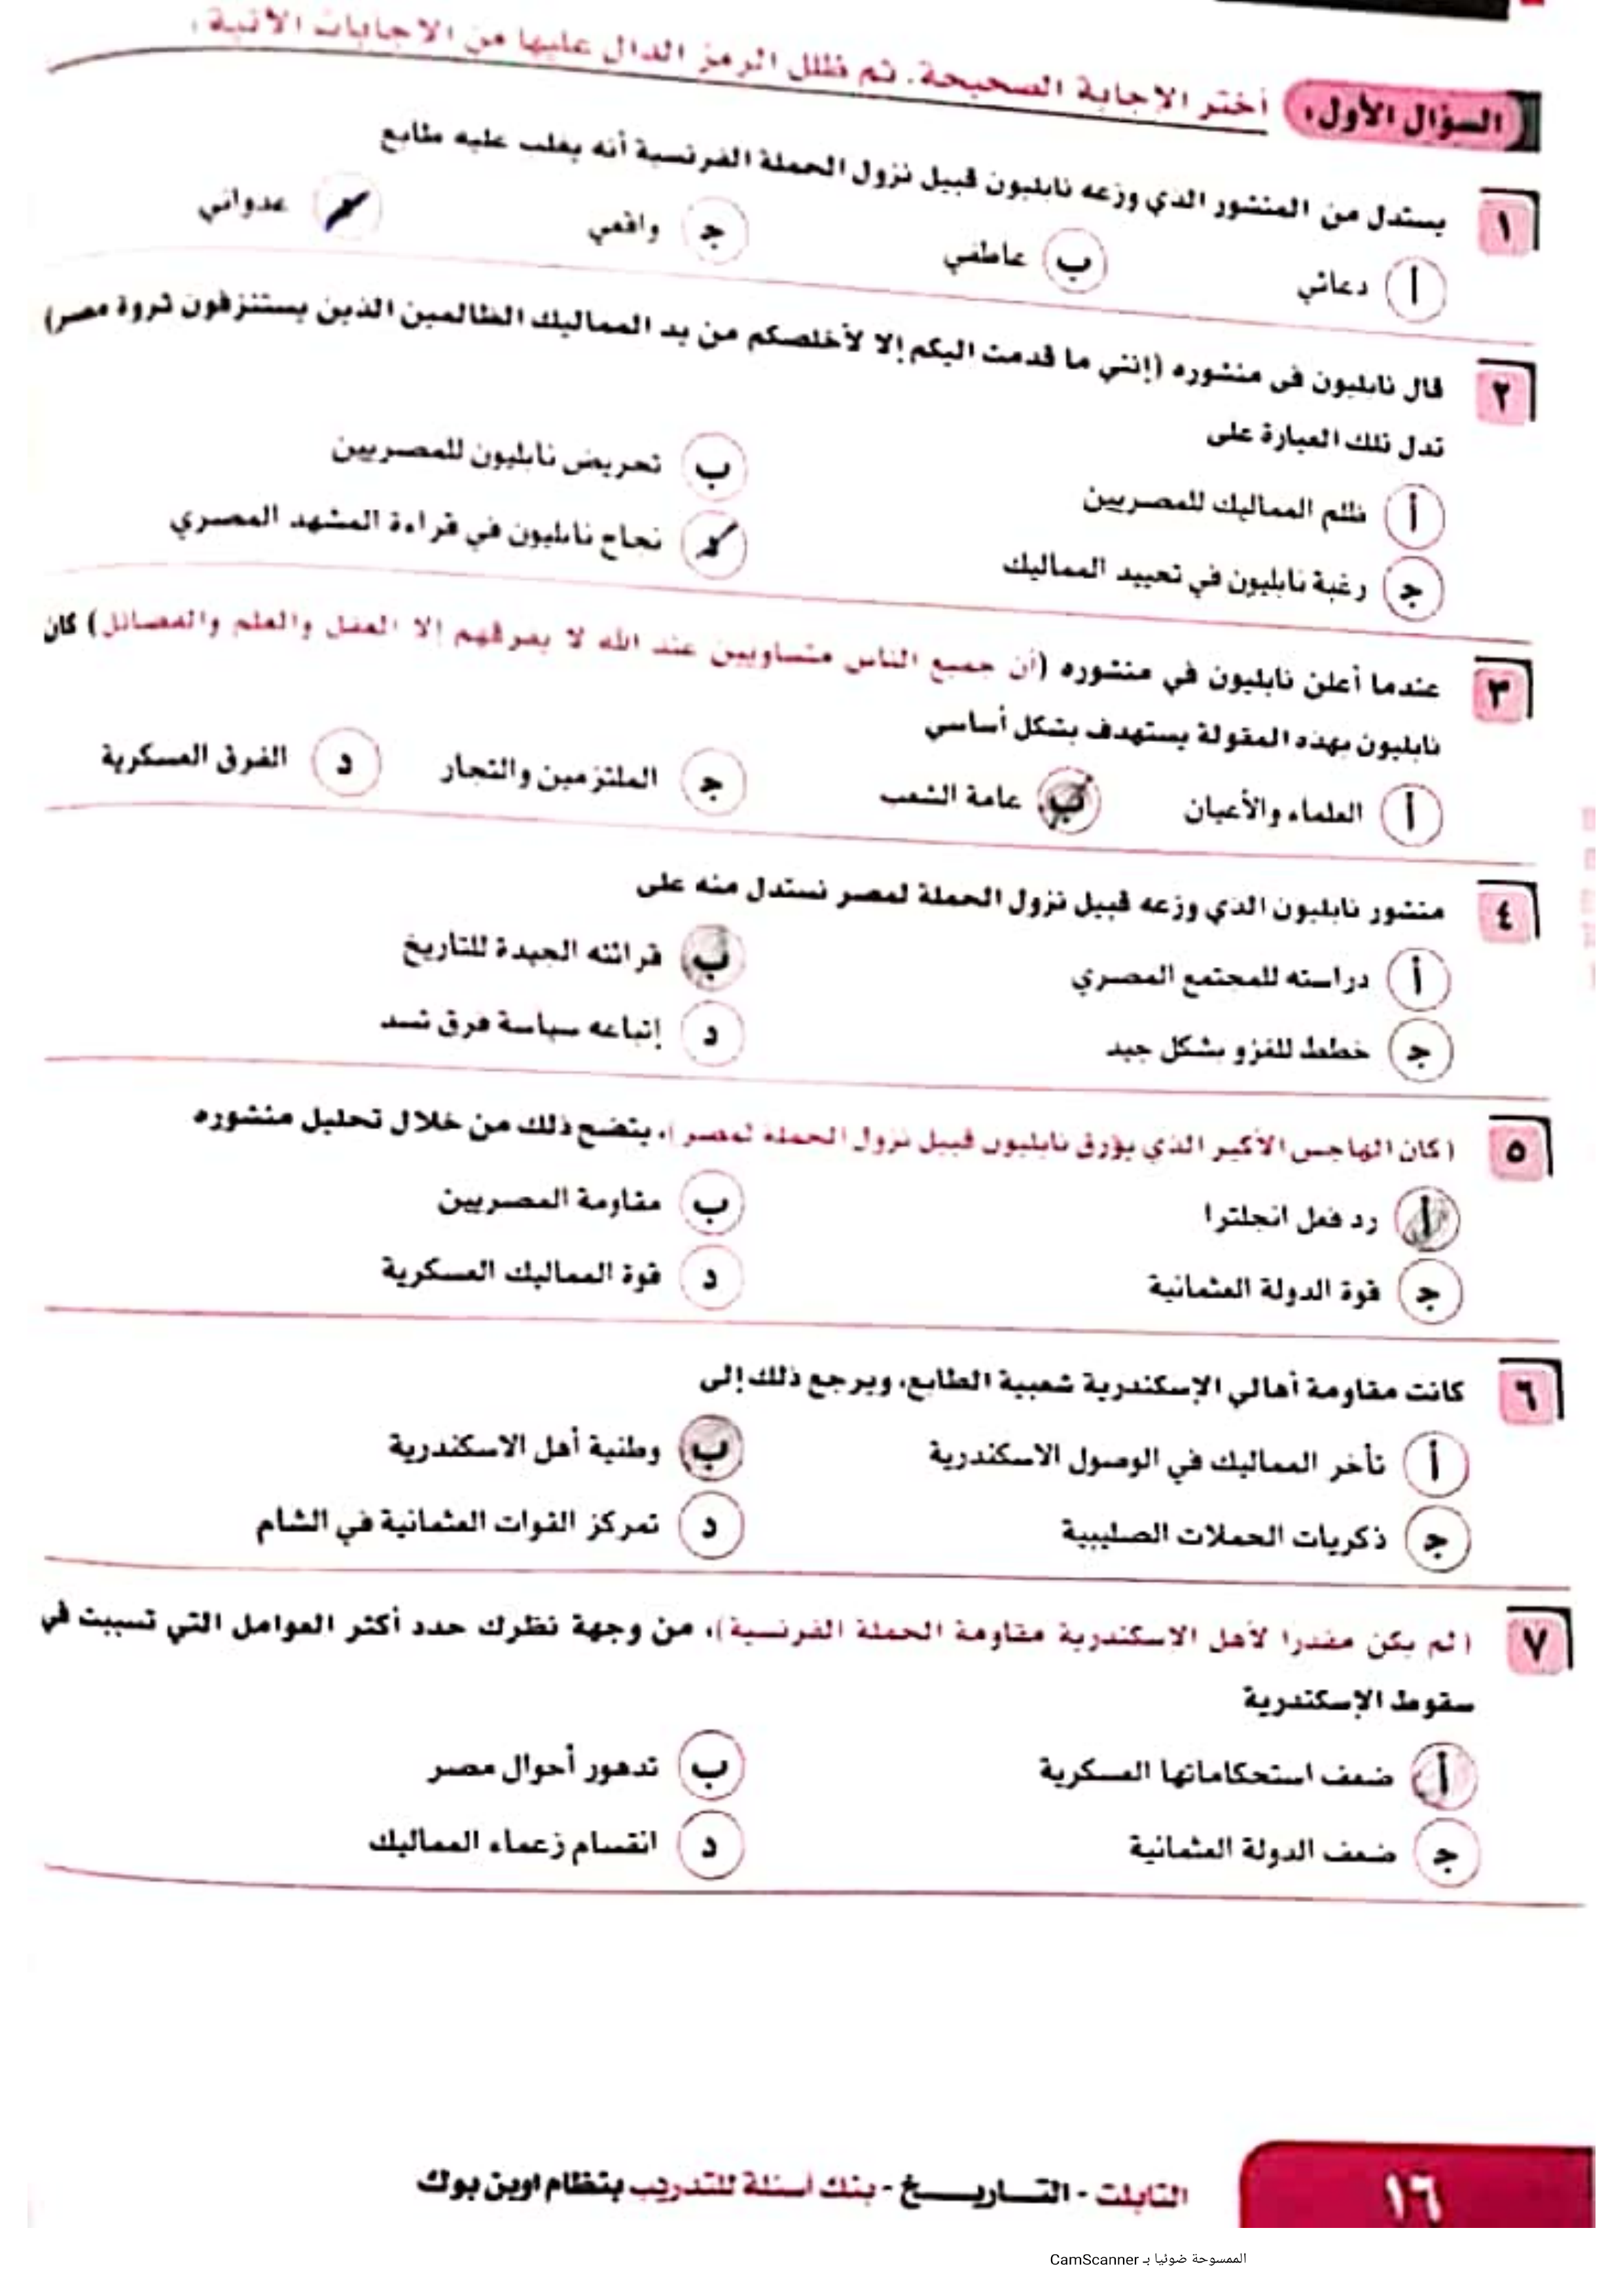 السؤال الأول: أختر الإجابة الصحيحة. ثم ظلل الرمز الدال عليها من الإجابات الآتية:
١ يستدل من المنشور الذي وزعه نابليون قبيل نزول الحملة الفرنسية أنه يغلب عليه طابع
أ دعائي ب عاطفي ج واقعي عدواني
٢ قال نابليون في منشوره (إنني ما قدمت اليكم إلا لأخلصكم من يد المماليك الظالمين الذين يستنزفون ثروة مصر)
تدل تلك العبارة على
أ ظلم المماليك للمصريين ب تحريض نابليون للمصريين
ج رغبة نابليون في تحييد المماليك نجاح نابليون في قراءة المشهد المصري
٣ عندما أعلن نابليون في منشوره (أن جميع الناس متساويين عند الله لا يفرقهم إلا العقل والعلم والفضائل) كان
نابليون بهذه المقولة يستهدف بشكل أساسي
أ العلماء والأعيان ب عامة الشعب ج الملتزمين والتجار د الفرق العسكرية
٤ منشور نابليون الذي وزعه قبيل نزول الحملة لمصر نستدل منه على
أ دراسته للمجتمع المصري ب قرائته الجيدة للتاريخ
ج خطط للغزو بشكل جيد د إتباعه سياسة فرق تسد
٥ (كان الهاجس الأكبر الذي يؤرق نابليون قبيل نزول الحملة لمصر)، يتضح ذلك من خلال تحليل منشوره
أ رد فعل انجلترا ب مقاومة المصريين
ج قوة الدولة العثمانية د قوة المماليك العسكرية
٦ كانت مقاومة أهالي الإسكندرية شعبية الطابع، ويرجع ذلك إلى
أ تأخر المماليك في الوصول الاسكندرية ب وطنية أهل الاسكندرية
ج ذكريات الحملات الصليبية د تمركز القوات العثمانية في الشام
٧ (لم يكن مقدرا لأهل الإسكندرية مقاومة الحملة الفرنسية)، من وجهة نظرك حدد أكثر العوامل التي تسببت في
سقوط الإسكندرية
أ ضعف استحكاماتها العسكرية ب تدهور أحوال مصر
ج ضعف الدولة العثمانية د انقسام زعماء المماليك
١٦ التابلت - التاريخ - بنك أسئلة للتدريب بنظام اوبن بوك
الممسوحة ضوئيا بـ CamScanner